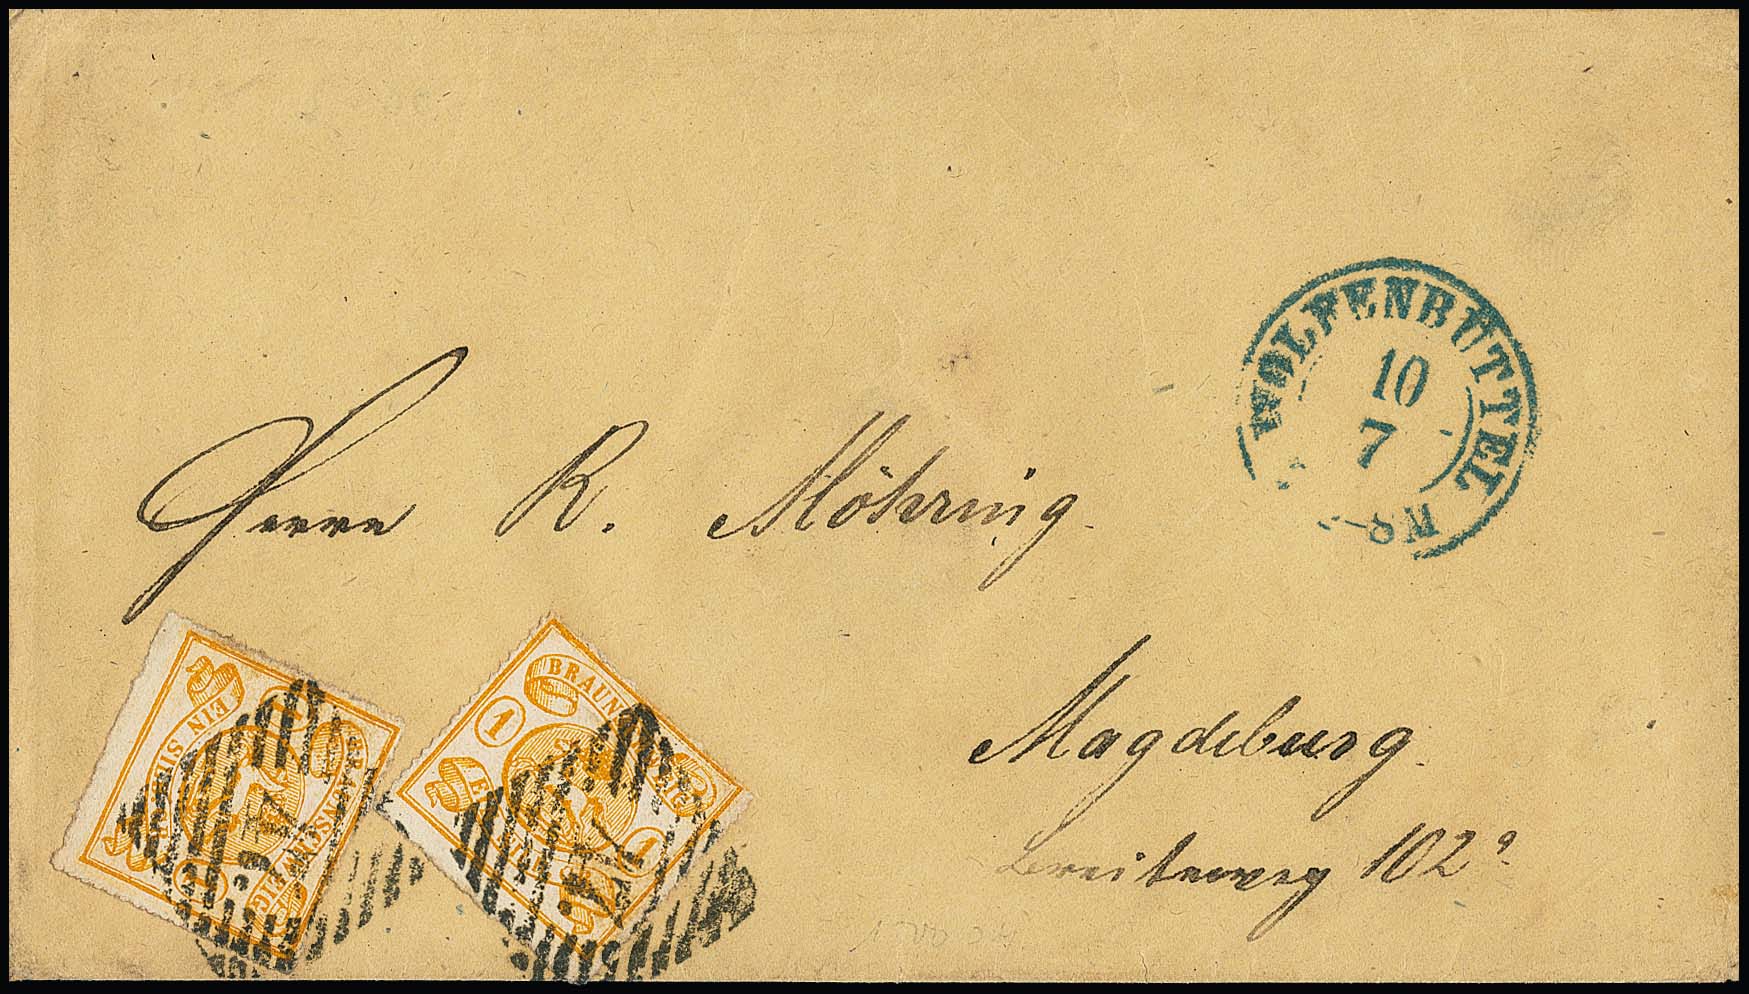 WOLFENBÜTTEL
10
7
8
Herrn R. Möhring.
Magdeburg.
Breiteweg 102ª
BRAUNSCHWEIG
1
1
EIN SILB
BRAUNSCHWEIG
1
1